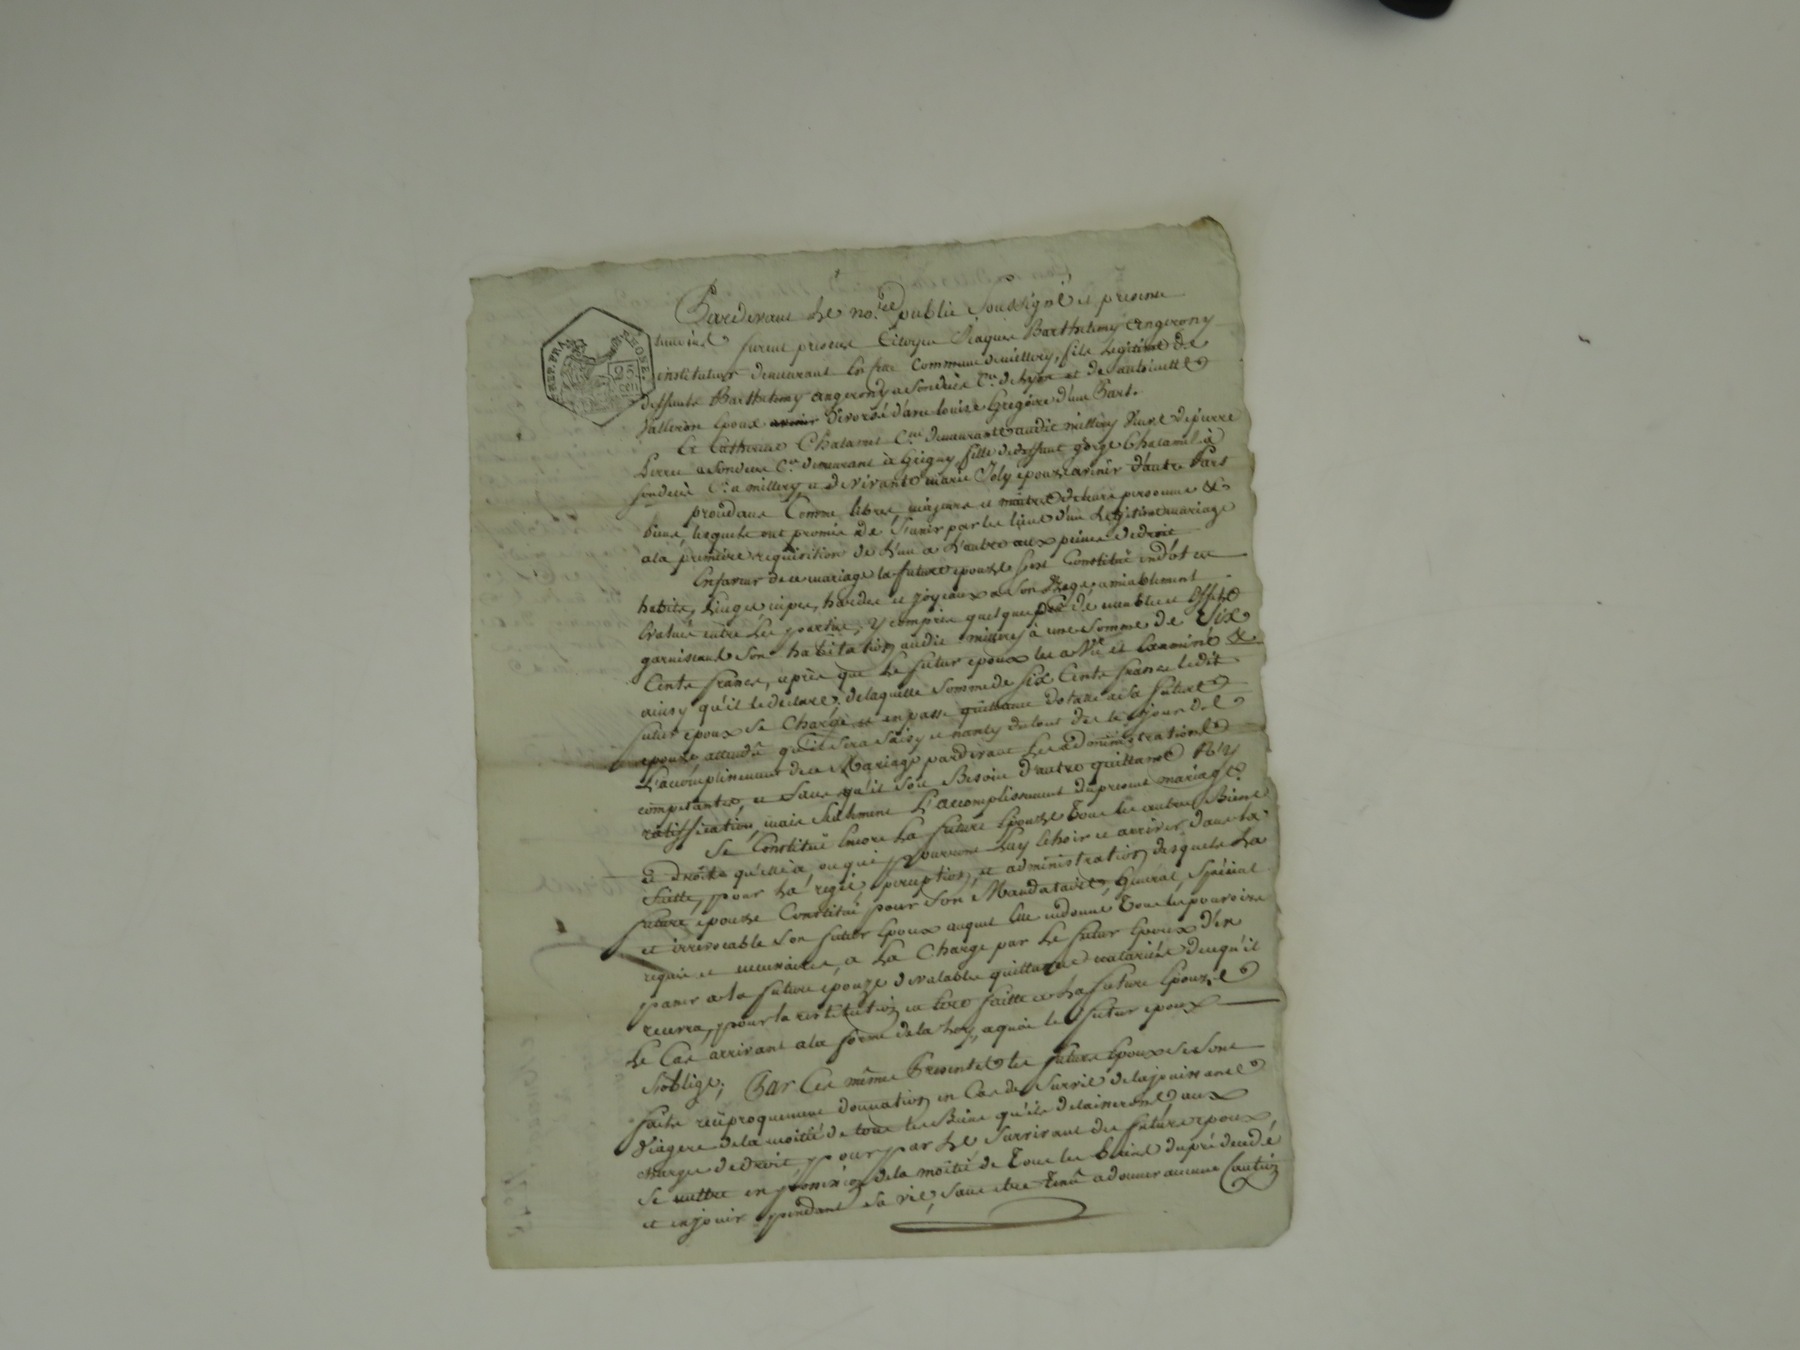 REP. FRA. RHONE.
25 cen
Pardevant le no.re public soussigné et presents
temoins furent presens Citoyen Jaques Barthelemy Angerony
instituteur demeurant en frac Commune de millery, fils Legitime de
deffunts Barthelemy Angerony a son deces C.n de Lyon et de antoinette
Valleron Epoux avenir divorsé d'anne louise Gregoire d'une Part.
Et Catherine Chalamel C.ne demeurante audit millery Veuve de pierre
Perre a son deces C.n demeurant à Grigny, fille de deffunt george Chalamel à
son deces C.n a millery et de vivante marie Joly epouze avenir d'autre Part
procedans Comme libres, majeurs et maitres de leurs personnes &
biens, lesquels ont promis de S'unir par les liens d'un Legitime mariage
a la premiere requisition de L'un a L'autre aux peines de droit
En faveur de ce mariage la future epouze s'est Constitué en dot ses
habits, linges nipes, hardes et joyeaux a son Usage, amiablement
Evalués entre Les parties, y compris quelques peu de meubles et Effets
garnissant Son habitation audit millery à une Somme de Six
Cents francs, après que Le futur epoux les a Vu et Examiné &
ainsy qu'il le declare, de laquelle Somme de Six Cents francs ledit
futur epoux Se Charge et en passe quittance dotalle a la future
epouze attendû qu'il Sera Saisy et nanty du tout dès le jour de
L'accomplissement de ce Mariage pardevant Les administrations
competantes, et Sans qu'il Soit Besoin d'autre quittance N'y
ratiffication, mais Seulement L'accomplissement du present mariage.
Se Constitué Encore La future Epouze Tous les autres Biens
et Droits qu'elle a, ou qui pourront Luy Echoir et arriver dans la
Suitte, pour La regie, perception, et administration desquels La
future epouze Constitué pour Son Mandataire, General, Spécial
et irrévocable Son futur Epoux auquel Elle en donne Tous les pouvoirs
requis et necessaires, a La Charge par Le futur Epoux d'en
passer a la future epouze de valables quittances notariées de ce qu'il
recevra, pour la restitution en Etre faitte a La future Epouze
Le Cas arrivant a la forme de la Loy, a quoi le futur epoux
S'oblige; Par Ces mêmes Presentes les futurs Epoux Se Sont
faits réciproquement donnation en Cas de Survie de la jouissance
Viagere de la moitié de tous les Biens qu'ils delaisseront aux
charges de droit, pour par Le Survivant des futurs epoux,
Se mettre en possession de la moitié de Tous les biens du prédecedé
et en jouir pendant Sa vie, Sans etre Tenû a donner aucune Caution